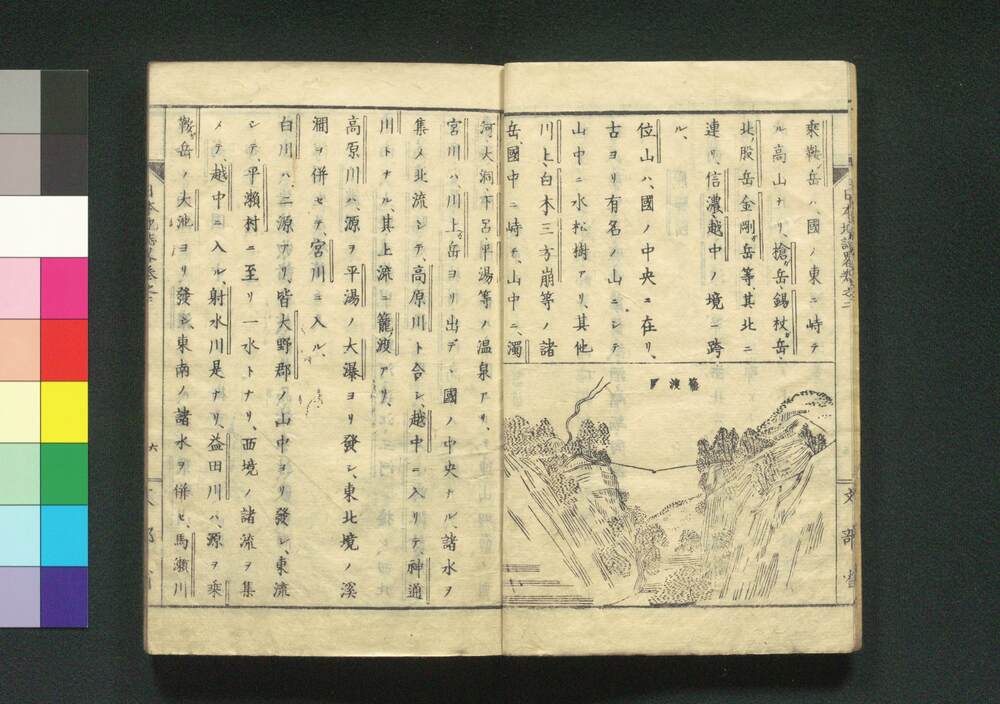 乘鞍ガ岳ハ、國ノ東ニ峙テ
ル高山ナリ、槍ガ岳、錫杖ガ岳、
北股岳金剛ガ岳等、其北ニ
連リ、信濃、越中ノ境ニ跨
ル、
位山ハ、國ノ中央ニ在リ、
古ヨリ有名ノ山ニシテ
山中ニ水松樹アリ、其他
川上、白木三方崩等ノ諸
岳、國中ニ峙チ、山中ニ、濁
籠渡
河大洞、下呂、平湯等ノ温泉アリ、
宮川ハ、川上ガ岳ヨリ出デ、國ノ中央ナル、諸水ヲ
集メ北流シテ、高原川ト合シ、越中ニ入リテ、神通
川トナル、其上流ニ籠渡アリ、
高原川ハ、源ヲ平湯ノ大瀑ヨリ發シ、東北境ノ溪
澗ヲ併セテ、宮川ニ入ル、
白川ハ、二源アリ、皆大野郡ノ山中ヨリ發シ、東流
シテ、平瀬村ニ至リ一水トナリ、西境ノ諸流ヲ集
メテ、越中ニ入ル、射水川是ナリ、益田川ハ、源ヲ乘
鞍ガ岳ノ大池ヨリ發シ、東南ノ諸水ヲ併セ、馬瀬川
六